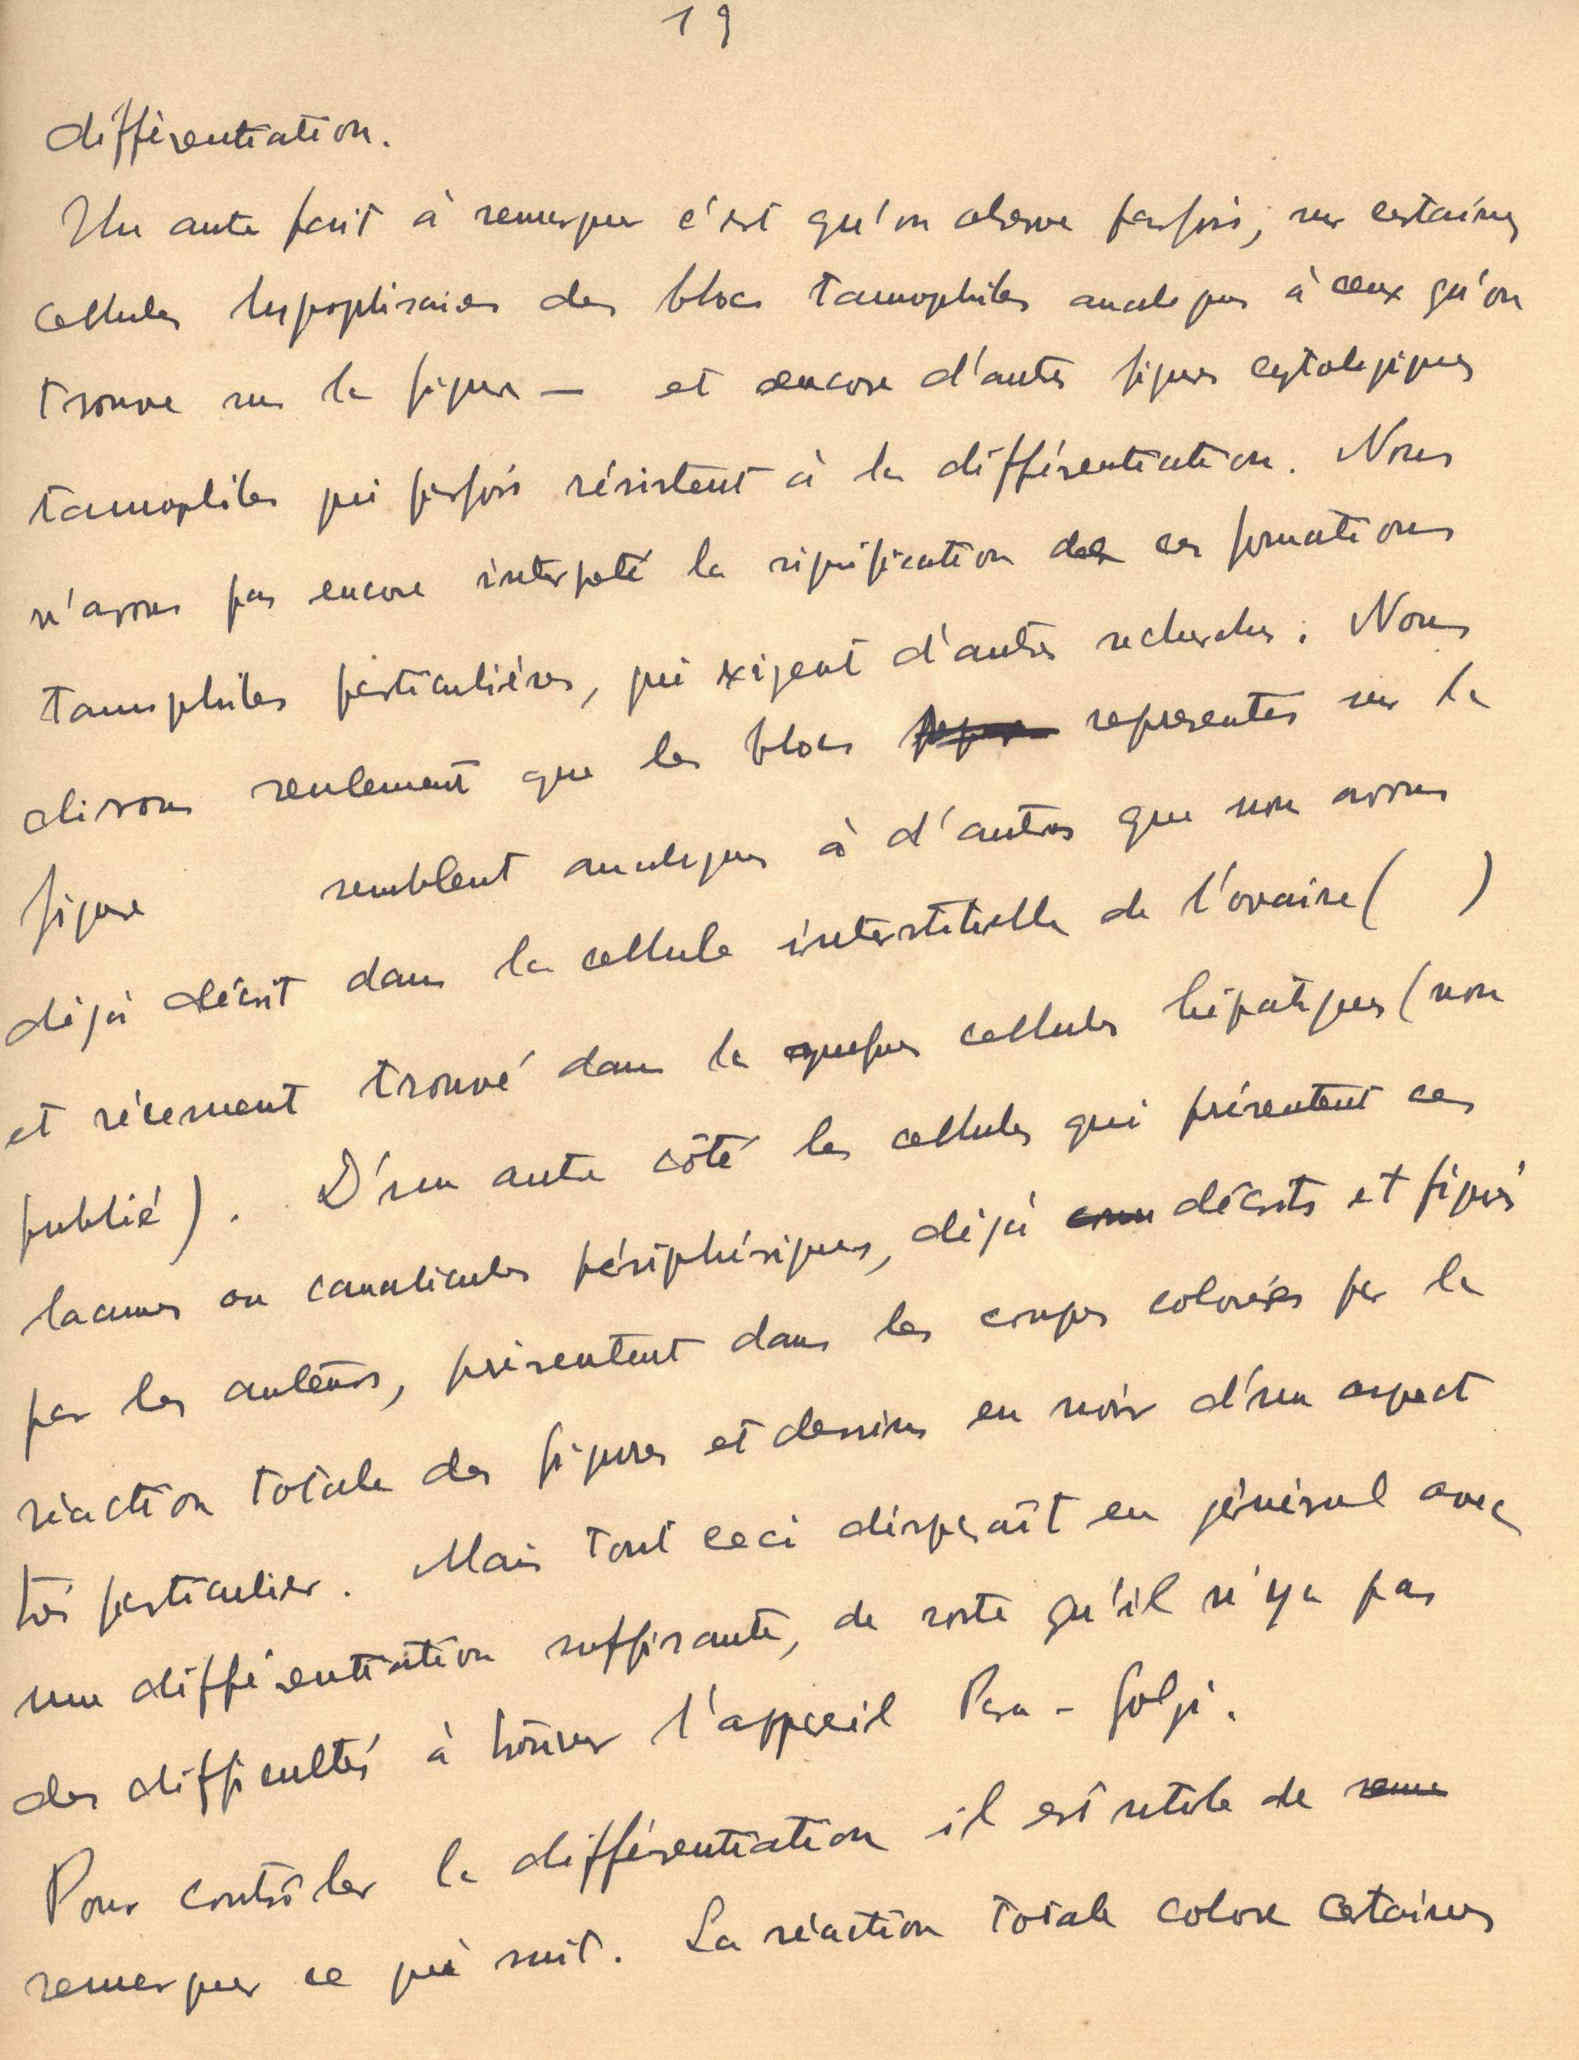 19
différentiation.
Un autre fait à remarquer c'est qu'on observe parfois, sur certaines
cellules hypophisaires des blocs tannophiles analogues à ceux qu'on
trouve sur la figure — et encore d'autres figures cytologiques
tannophiles qui parfois résistent à la différentiation. Nous
n'avons pas encore interpreté la signification de ces formations
tannophiles particulières, qui exigent d'autres recherches. Nous
disons seulement que les blocs representés sur la
figure semblent analogues à d'autres que nous avons
déjà décrit dans la cellule interstitielle de l'ovaire ( )
et récemment trouvé dans la quelques cellules hépatiques (non
publié). D'un autre côté les cellules qui présentent ces
lacunes ou canalicules périphériques, déjà décrits et figurés
par les auteurs, présentent dans les coupes colorées par la
réaction totale des figures et dessins en noir d'un aspect
très particulier. Mais tout ceci disparaît en général avec
une différentiation suffisante, de sorte qu'il n'y a pas
des difficultés à trouver l'appareil Para-Golgi.
Pour contrôler la différentiation il est utile de
remarquer ce qui suit. La réaction totale colore certaines